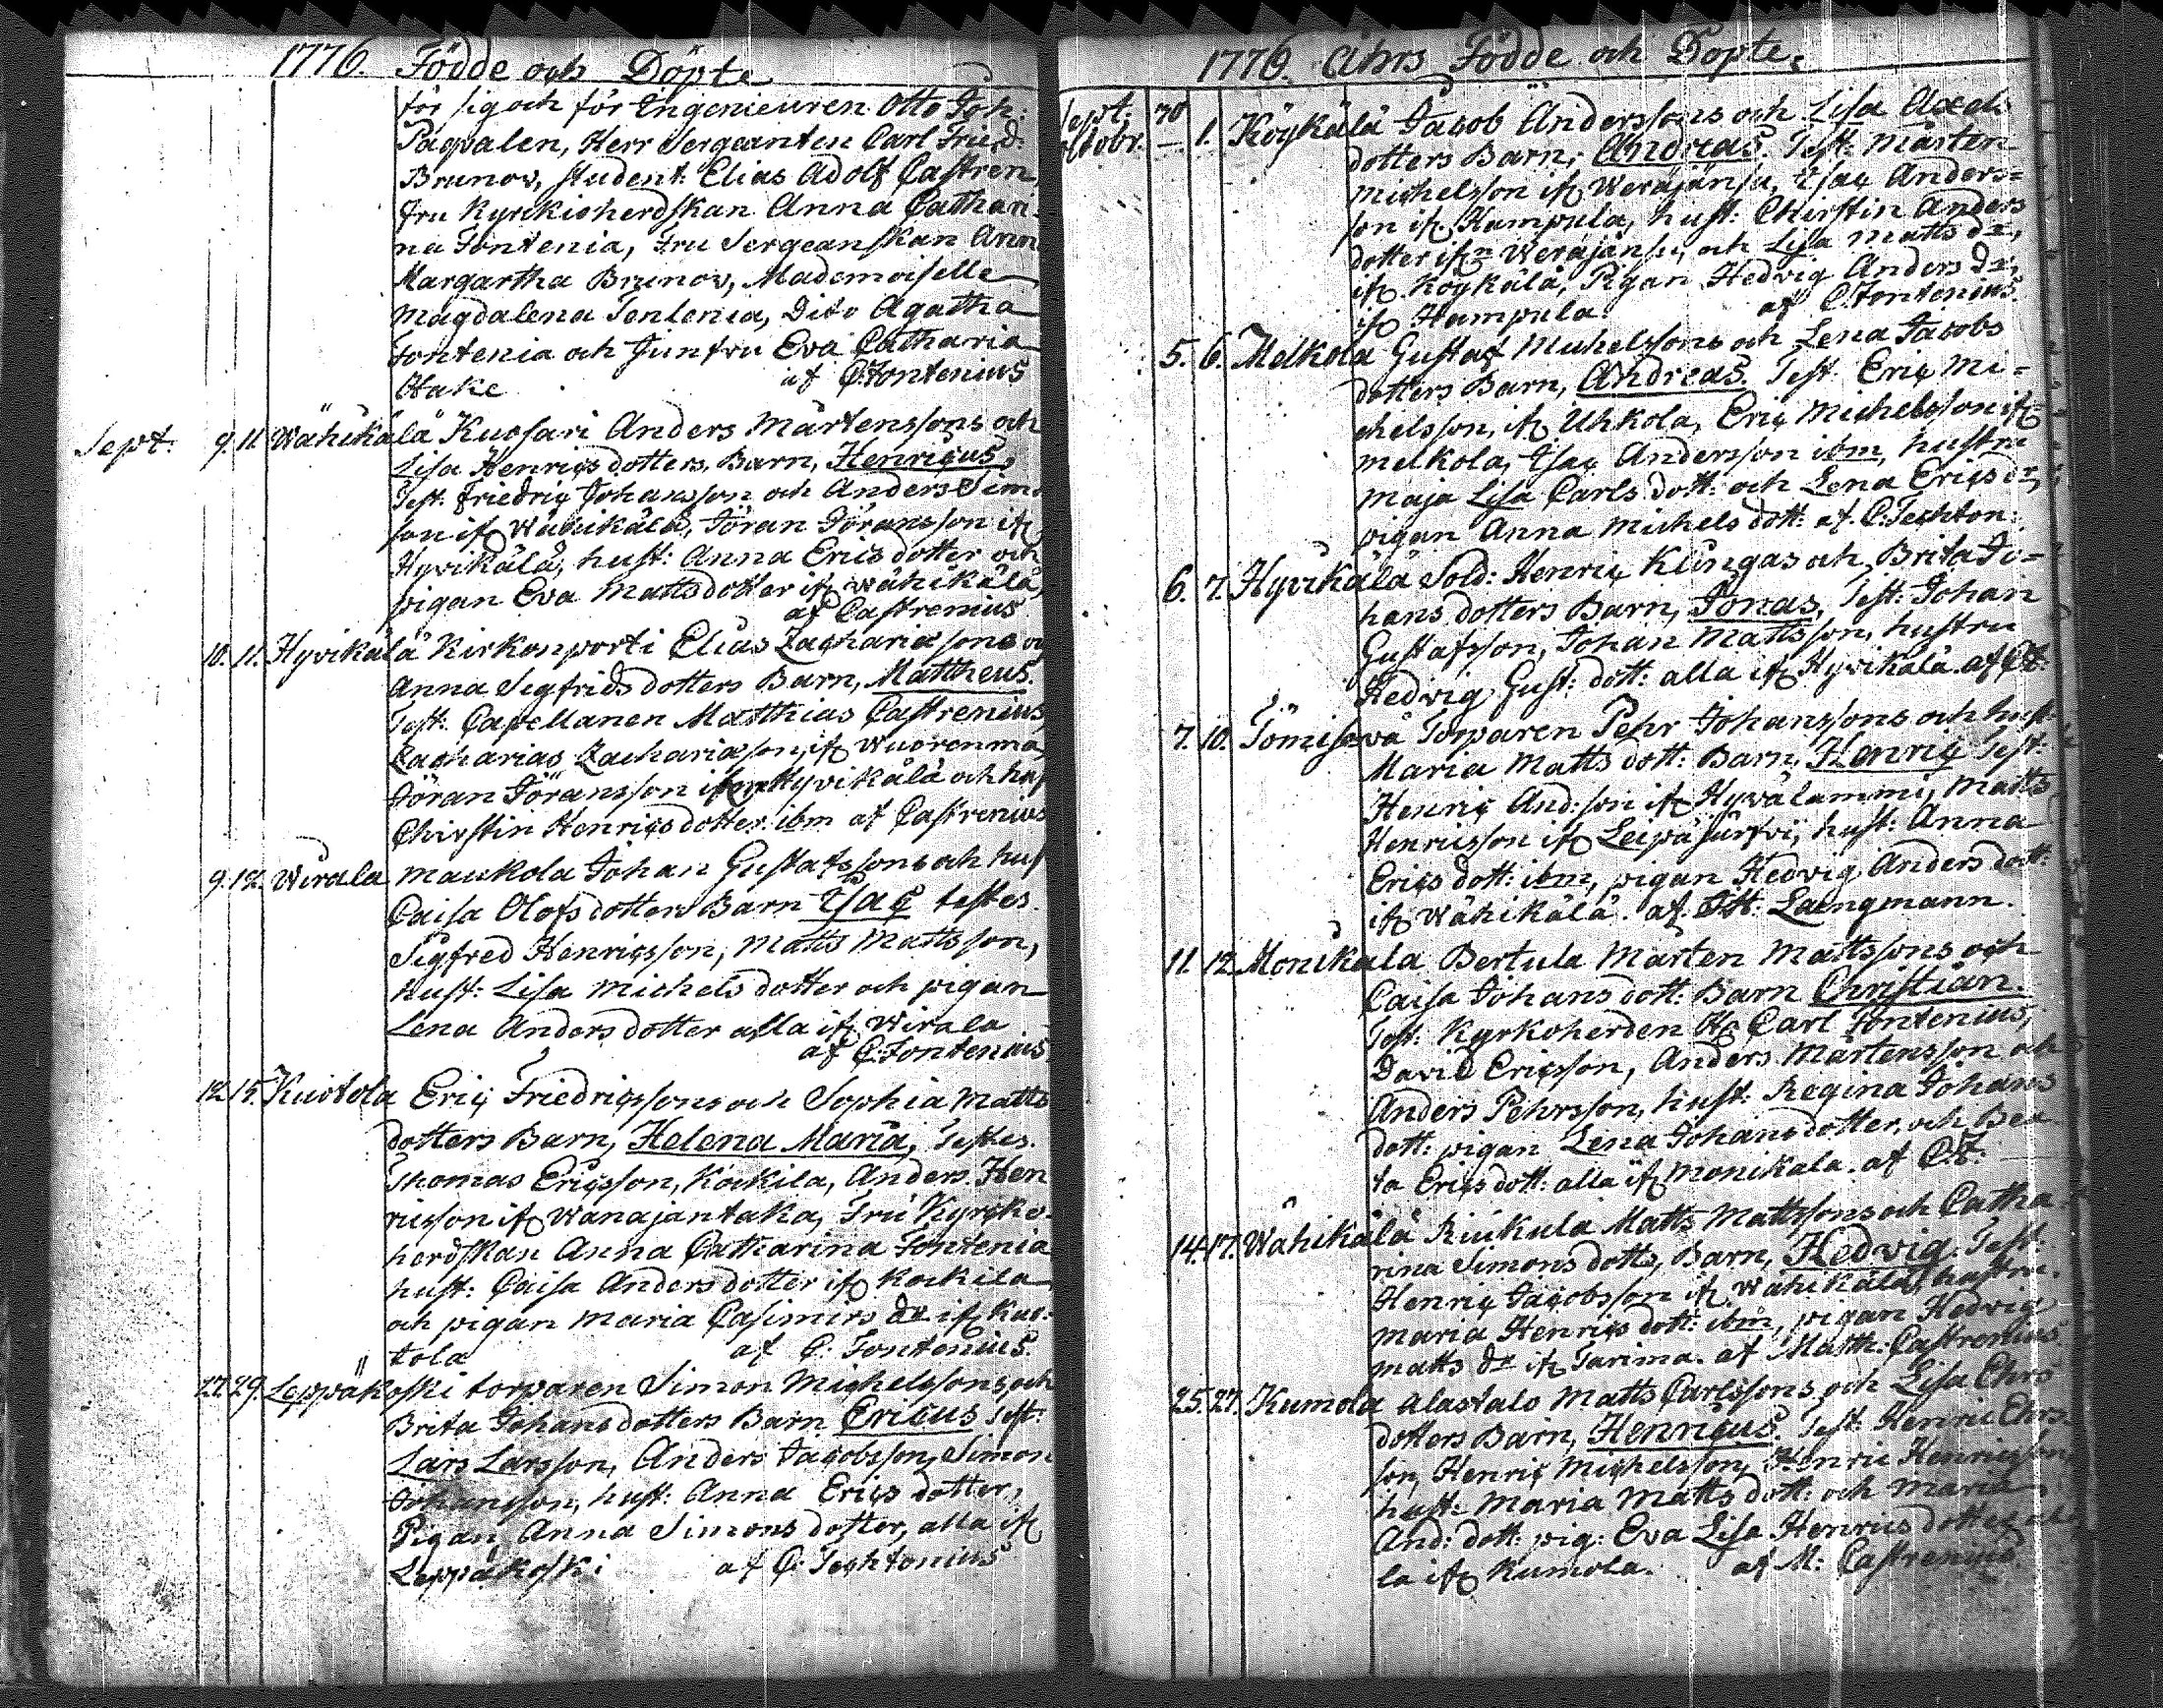 1776. Födde och Döpte
för sig och för Ingenieuren Otto Joh:
Paqvalen, Herr Sergeanten Carl Fried:
Brunov, student: Elias Adolf Castren,
fru Kyrckioherdskan Anna Cathari-
na Fontenia, Fru Sergeanskan Anna
Margartha Brunov, Mademoiselle
Magdalena Fontenia, Dito Agatha
Fontenia och Junfru Eva Catharia
Hake af C: Fontenius
Sept. 9. 11. Wähikälä Kuosari Anders Mårtenssons och
Lisa Henriçsdotters, Barn, Henriçus,
Test: Friedriç Johansson och Anders Sim-
son ifr Wähikälä, Jöran Jöransson ifr
Hyvikälä, hust: Anna Erics dotter och
pigan Eva Mattsdotter ifr Wähikälä,
af Castrenius
10. 11. Hyvikälä Kirkonporti Elias Zachariæsons o
Anna Sigfrids dotters Barn, Mattheus.
Test: Capellanen Matthias Castrenius,
Zacharias Zachariæson, ifr Wuorenma,
Jöran Jöransson Hyvikälä och hust
Chirstin Henriçsdotter ibm af Castrenius
9. 12. Wirala Maukola Johan Gustafssons och hus
Caisa Olofs dotters Barn Isaç testes.
Sigfred Henriçsson, Matts Mattsson,
hust: Lisa Michels dotter och pigan
Lena Anders dotter alla ifr Wirala.
af C: Fontenius
12. 15. Kuotola Eriç Friedriçssons och Sophia Matts
dotters Barn, Helena Maria, Testes.
Thomas Eriçsson, Kockila, Anders Hen
ricsson ifr Wanajantaka, Fru Kyrcko-
herdskan Anna Catharina Fontenia
hust: Caisa Anders dotter ifr Kockila,
och pigan Maria Casimirs dr ifr Kuo-
tola af C: Fontenius.
27. 29. Leppäkoski torparen Simon Michelssons och
Brita Johans dotters Barn Ericus Test:
Lars Larsson, Anders Jacobsson, Simon
Johansson, hust: Anna Eriçs dotter,
Pigan Anna Simons dotter, alla ifr
Leppäkoski af C: Techtonius
1776. Åhrs Födde och Döpte.
Sept: 30
octobr. — 1. Köykälä Jacob Anderssons och Lisa Axels
dotters Barn, Andreas. Test: Mårten
Michelsson ifr Weräjänsu, Isaç Anders=
son ifr Hampula, hust: Chirstin Anders
dotter ifrn Weräjänsu, och Lisa Matts dr,
ifr Köykälä, Pigan Hedvig Anders dr,
ifr Hampula. af C: Fontenius.
5. 6. Melkola Gustaf Michelssons och Lena Jacobs
dotters Barn, Andreas. Test. Eriç Mi=
chelsson, ifr Uhkola, Eriç Michelsson ifr
Melkola, Isaç Andersson ibm, hustru
Maja Lisa Carls dott: och Lena Eriçs dr,
pigan Anna Michels dott: af. C: Techton:
6. 7. Hyvikälä Sold: Henriç Klingas och Brita Jo=
hans dotters Barn, Jonas, Test: Johan
Gustafsson, Johan Mattsson, hustru
Hedvig Gust: dott: alla ifr Hyvikälä. af CF:
7. 10. Tömisevä Torparen Pehr Johanssons och hust
Maria Matts dott: Barn, Henriç Test:
Henriç And:son ifr Hyvälammi, Matts
Henricsson ifr hust: Anna
Eriçs dott: ibm, pigan Hedvig Anders dott:
ifr Wähikälä. af. Ott: Laengmann.
11. 12. Monikala Bertula Mårten Mattssons och
Caisa Johans dott: Barn Christian.
Test: Kyrkoherden Hr Carl Fontenius,
David Eriçsson, Anders Mårtensson och
Anders Pehrsson, hust: Regina Johans
dott: pigan Lena Johans dotter, och Bea
ta Eriçs dott: alla ifr Monikala. af C:F: —
14. 17. Wähikälä Riukula Matts Mattssons och Catha
rina Simons dotts, Barn, Hedwig. Test.
Henriç Jacobsson ifr Wähikälä, hustru.
Maria Henriçs dott: ibm, pigan Hedvig
Matts dr ifr Tarima. af Matth: Castrenius
25. 27. Kumola Alastalo Matts Carlssons och Lisa Chrs
dotters Barn, Henriçus. Test. Henric Ehrs
son, Henriç Michelsson, Henric Henricsson,
hust: Maria Matts dott: och Maria
And: dott: pig: Eva Lisa Henrics dotter al
la ifr Kumola. af M: Castrenius.